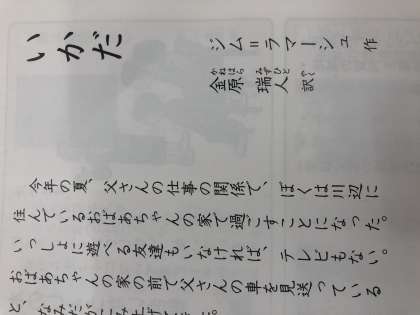 いかだ
ジム＝ラマーシュ 作
金原 瑞人 訳
かねはら みずひと やく
今年の夏、父さんの仕事の関係で、ぼくは川辺に
住んでいるおばあちゃんの家で過ごすことになった。
いっしょに遊べる友達もいなければ、テレビもない。
おばあちゃんの家の前で父さんの車を見送っている
と、なみだがこみ上げて